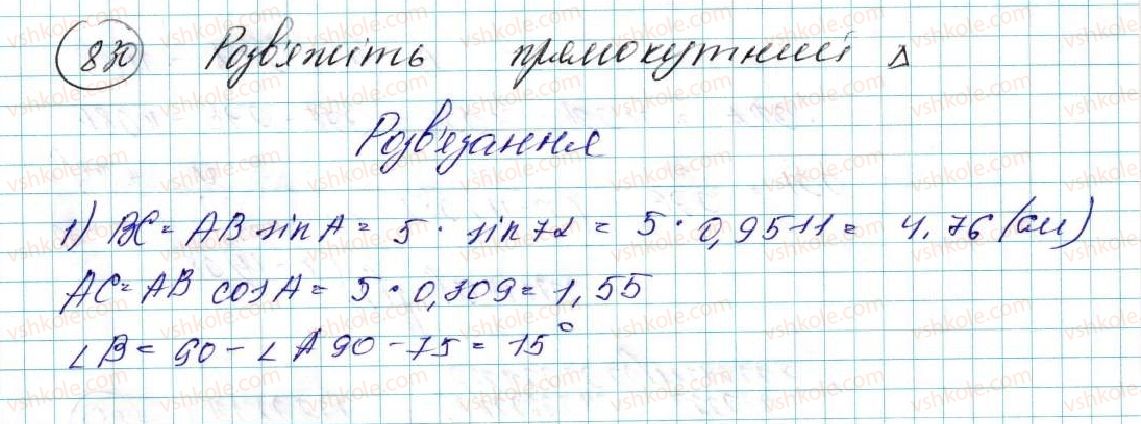 830 Розв'яжіть прямокутний Δ
Розв'язання
1) BC = AB sin A = 5 · sin 72 = 5 · 0,9511 = 4.76 (см)
AC = AB cos A = 5 · 0,309 = 1,55
∠B = 90 - ∠A 90 - 75 = 15°